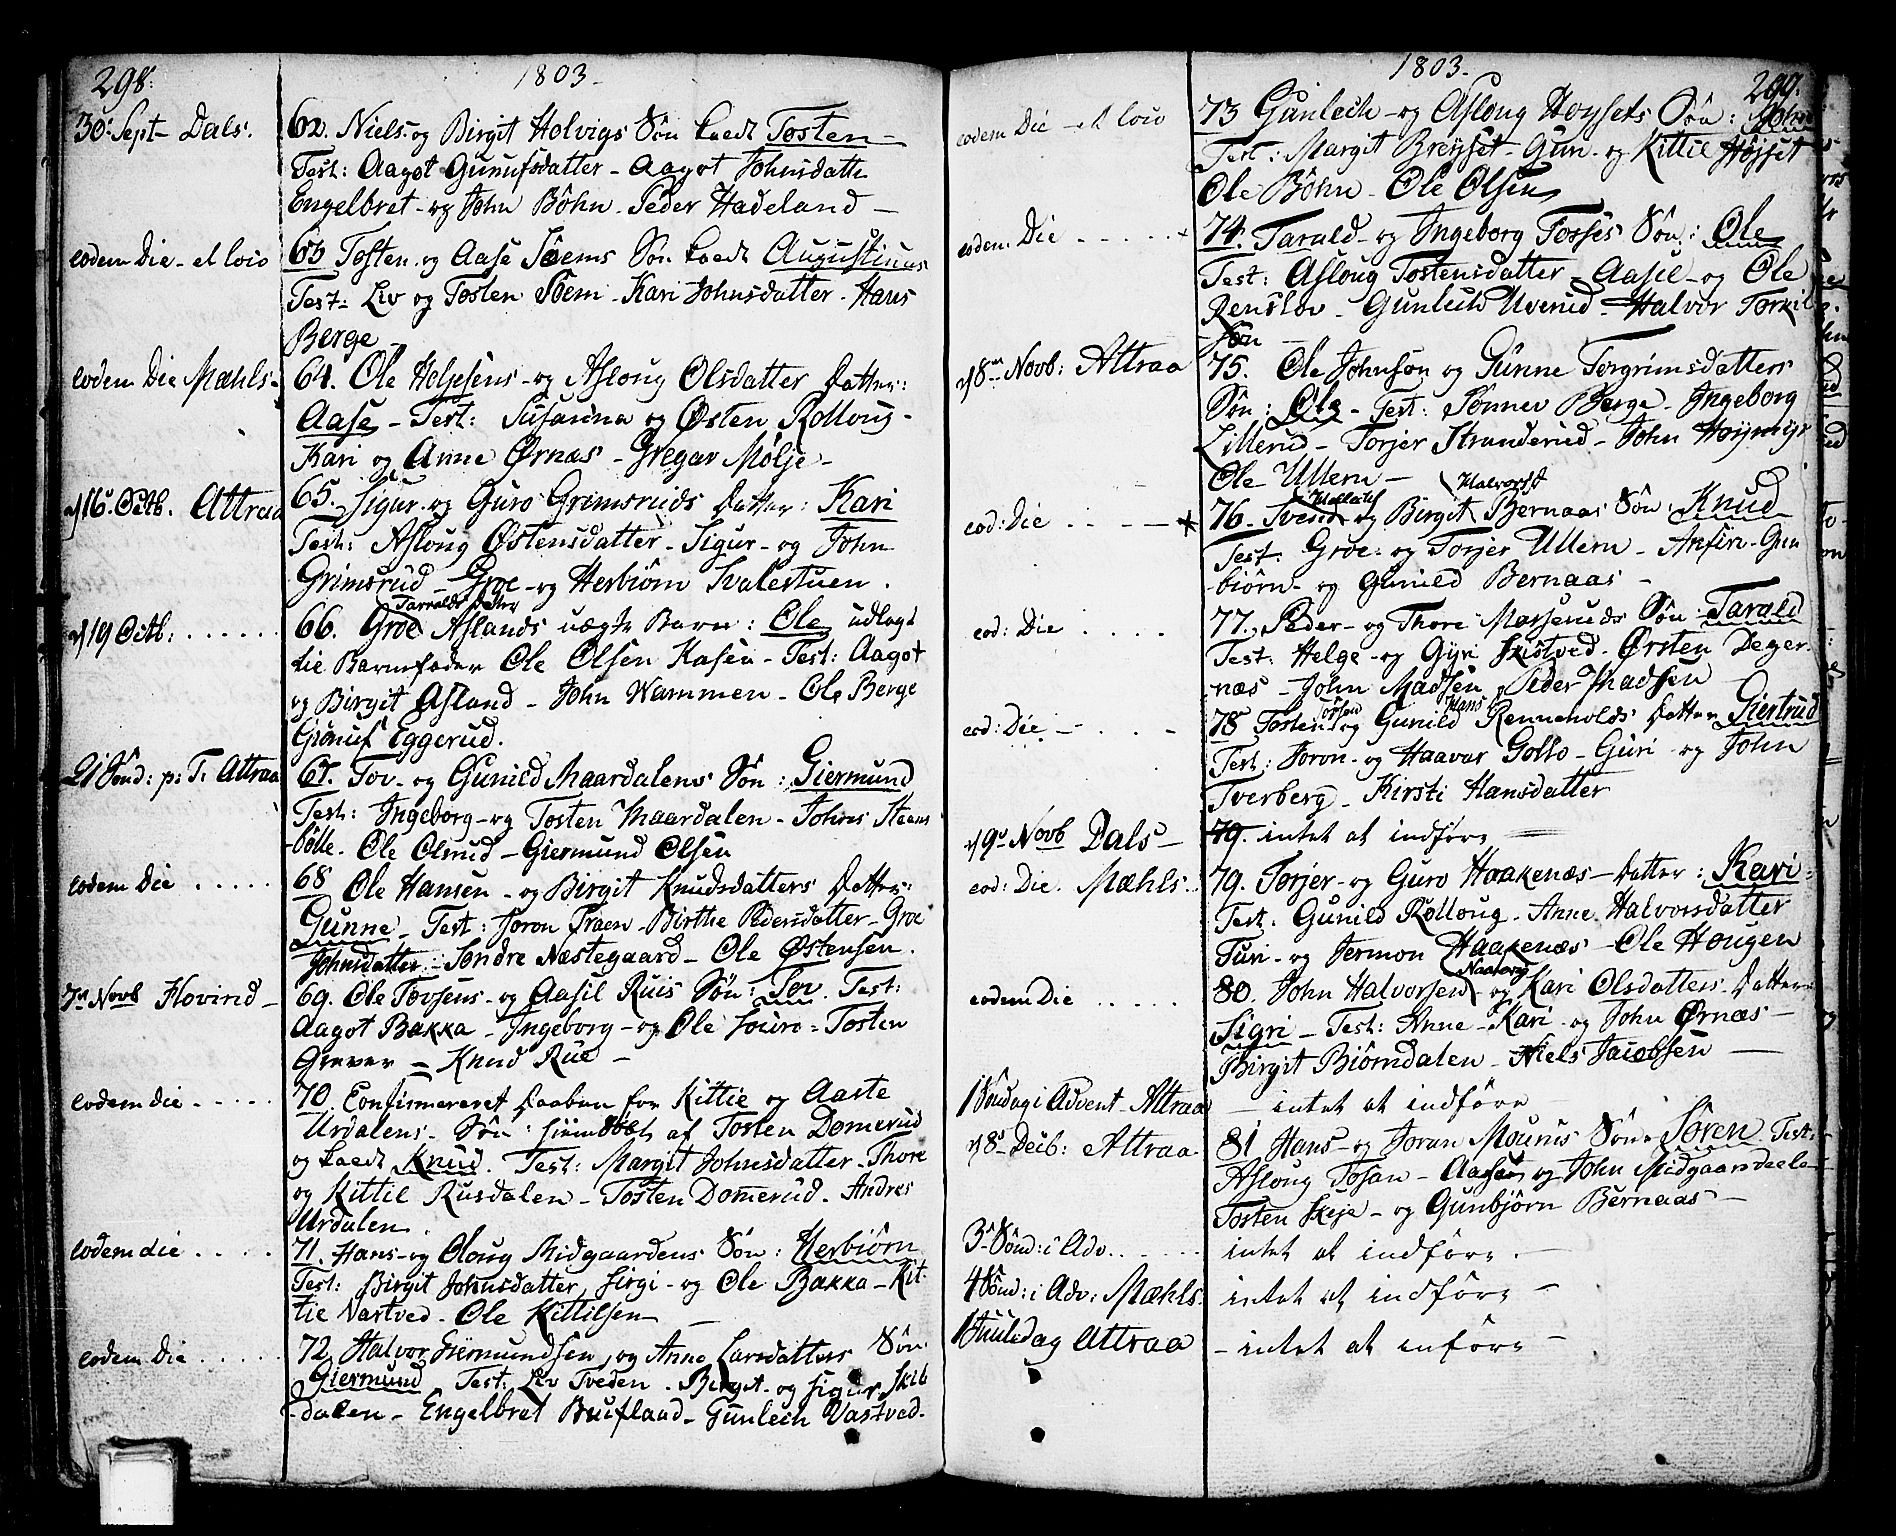 298.
1803.
30. Sept. Dals.
62. Niels og Birgit Holvigs Søn kaedt Tosten
Test: Aagot Gunufsdatter - Aagot Johnsdatte
Engelbret - og John Böhn - Peder Hadeland -
eodem Die - et loio
63 Tosten og Aase Söems Søn kaedt Augustinus
Test: Liv og Tosten Söem - Kari Johnsdatter - Hans
Berge -
eodem Die Mæhls -
64. Ole Holjesens - og Asloug Olsdatter Datter:
Aase - Test: Susanna og Østen Rolloug -
Kari og Anne Ørnæs - Gregar Mølje -
16. Octb. Attraa
65. Sigur - og Guro Grimsruds Datter: Kari
Test: Asloug Østensdatter - Sigur - og John
Grimsrud - Groe - og Herbiörn Svalestuen.
19 Octb: . . . . . .
Tarralds datter
66. Groe Aslands uægte Barn: Ole udlagt
tie Barnefader Ole Olsen Kasen - Test: Aagot
og Birgit Asland - John Wammen - Ole Berge
Giönuf Eggerud.
21 Sønd: p: T. Attraa
67. Tov - og Gunild Maardalens Søn: Giermund
Test: Ingeborg - og Tosten Maardalen - Johnes Steens
bölle - Ole Olsrud - Giermund Olsen
eodem die . . . . .
68 Ole Hansen - og Birgit Knudsdatters Datter:
Gunne - Test: Joron Fraen - Birthe Pedersdatter - Groe
Johnsdatter - Söndre Næstegaard - Ole Østensen.
7de Novb Hovind -
69. Ole Tovsens - og Aasil Ruis Søn: Tov. Test:
Aagot Bakka - Ingeborg - og Ole Louro - Tosten
Graver - Knud Rue -
eodem die . . . .
70. Confirmereret Daaben for Kittie og Aaste
Urdalens - Søn: hiemdöbt af Tosten Domerud
og kaedt Knud. Test: Margit Johnsdatter - Thore
og Kittil Rusdalen - Tosten Domerud - Andres
Urdalen.
eodem die . . . .
71. Hans - og Oloug Midgaardens Søn: Herbiörn
Test: Birgit Johnsdatter, Sirgi - og Ole Bakka - Kit-
tie Vastved - Ole Kittilsen -
eodem Die . . . . .
72 Halvor Giermundsen, og Anne Larsdatters Søn:
Giermund Test: Liv Tveden - Birgit - og Sigur Skib
dalen - Engelbret Busland - Gunleih Vastved.
1803.
299.
eodem Die - et loio
73 Gunleih - og Asloug Hoysets Søn: John
Test: Margit Breyset - Gun - og Kittil Høyset
Ole Böhn - Ole Olsen
eodem Die - - - - -
74. Tarald - og Ingeborg Fosses Søn: Ole
Test: Asloug Tostensdatter - Aasil - og Ole
Renslov - Gunleih Uverud - Halvor Torkil
sön -
8de Novb: Attraa
75. Ole Johnson og Gunne Torgrimsdatters
Søn: Ole - Test: Sönnev Berge - Ingeborg
Lillerud - Torjer Stranderud - John Hoymyr
Ole Ullern -
eod: Die . . . . .
Halvorsd
76. Svend og Birgit Bernaas Søn: Knud
Test: Groe - og Torjer Ullern - Ansin - Gun
biörn - og Gunild Bernaas -
eod: Die . . . .
77. Peder - og Thore Messeruds Søn: Tarald
Test: Helge - og Gyri Skistved - Ørsten Deger-
næs - John Madsen - Peder Madsen
eod: Die - . . .
Hans
78 Tosten og Gunild Renneholds Datter Giertrud
Test: Joron - og Haavar Gollo - Guri - og John
Tverberg - Kirsti Hansdatter
9de Novb Dals -
79. intet at indføre -
eod: Die. Mæhls.
79. Torjer - og Guro Haakenæs - Datter: Kari
Test: Gunild Rolloug - Anne Halvorsdatter
Turi - og Jermon Haakenæs - Ole Hougen
eodem Die . . . . .
Naaberg
80. John Halvorsen - og Kari Olsdatters Datter
Sigri - Test: Anne - Kari - og John Ørnæs -
Birgit Biörndalen - Niels Jacobsen -
1 Söndag i Advent - Attraa
- intet at indføre -
8de Decb: Attraa
81 Hans - og Joran Mouris Søn - Søren. Test:
Asloug Fosan - Aasne og John Midgaarsdeele -
Tosten Skeje - og Gunbjörn Bernaas -
3de Sønd: i Adv. . . . .
intet at indføre -
4 Sønd: i Adv: Mæhls.
intet at indføre -
1 Juuledag Attraa
- intet at inføre -